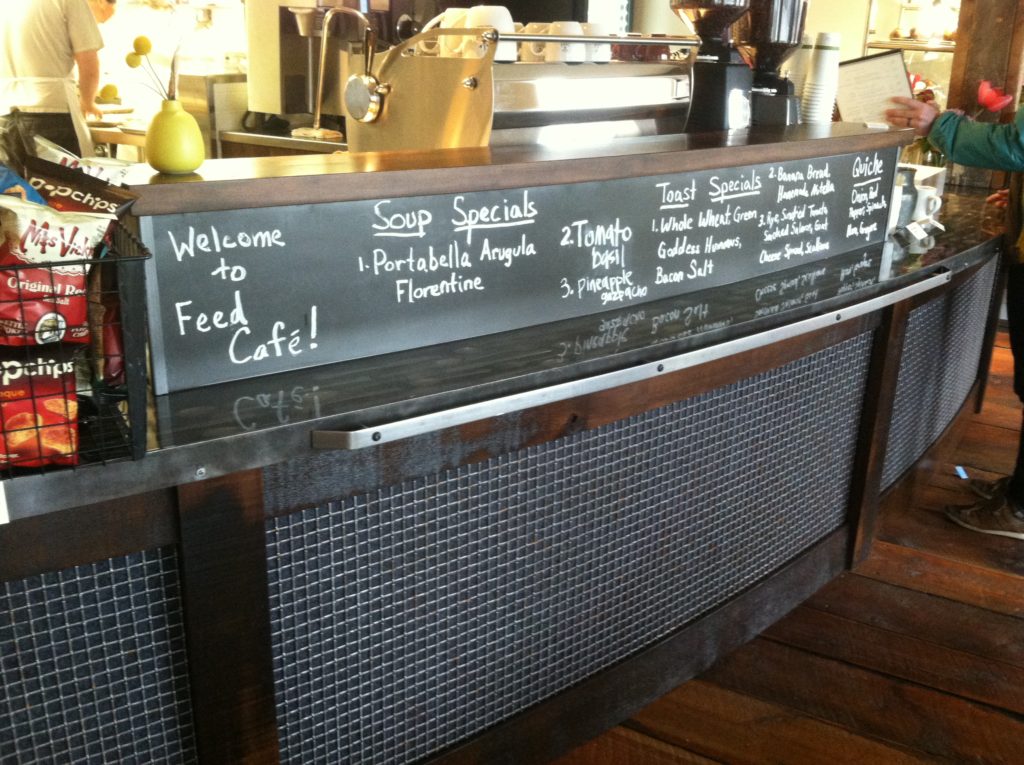 Welcome
to
Feed
Café!
Soup Specials
1. Portabella Arugula
Florentine
2. Tomato
basil
3. Pineapple
gazpacho
Toast Specials
1. Whole Wheat, Green
Goddess Hummus,
Bacon Salt
2. Banana Bread,
Homemade Nutella
3. Rye, Sundried Tomato
Smoked Salmon, Goat
Cheese Spread, Scallions
Quiche
Onion, Red
Pepper, Spinach,
popchips
Miss Vickie's
Original Re
Salt
pchips
que